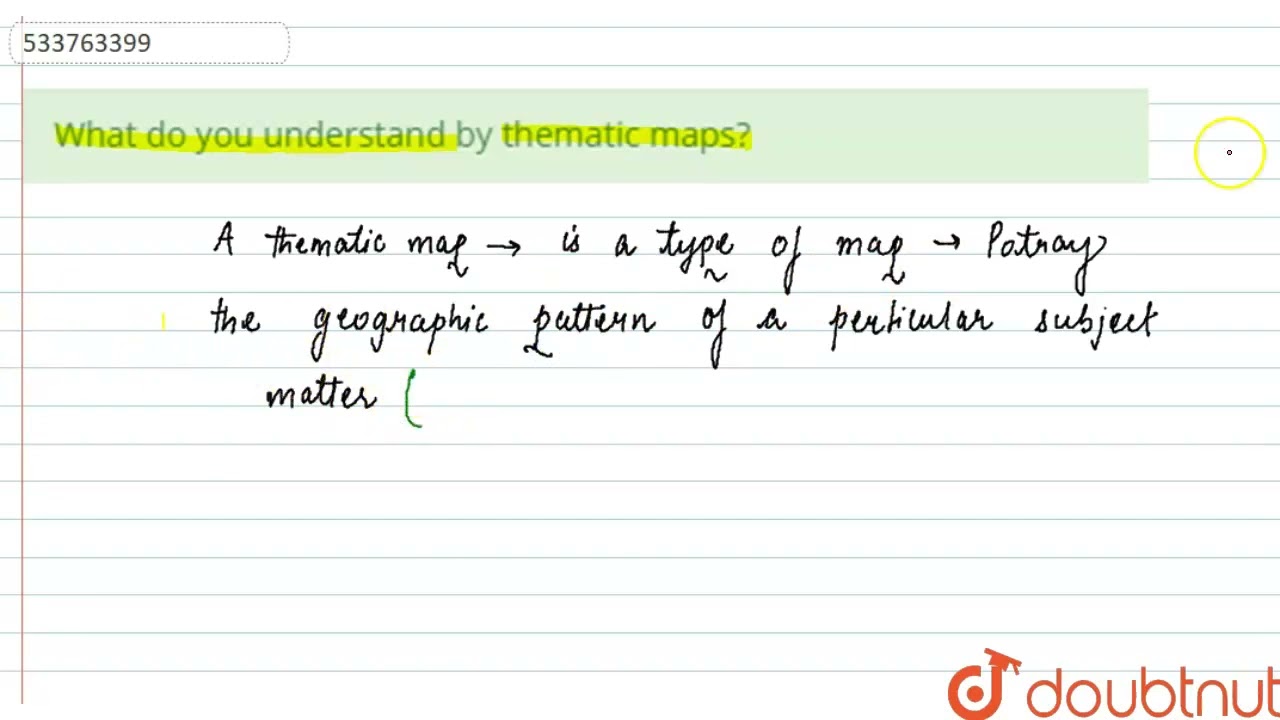 533763399
What do you understand by thematic maps?
A thematic map → is a type of map → Potray
the geographic pattern of a perticular subject
matter (
doubtnut